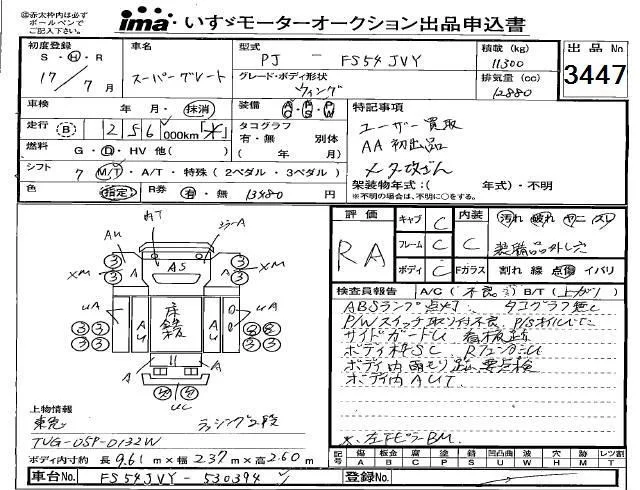 ㊟赤太枠内は必ず
ボールペンで
ご記入下さい。
ima・いすゞモーターオークション出品申込書
初度登録
S・H・R
17年 7月
車名
スーパーグレート
型式
PJ － FS54JVY
グレード・ボディ形状
ウィング
積載(kg)
11300
排気量(cc)
12880
出品No
3447
車検 年・月・抹消
装備 AC PS PW
走行 B 256,000km
タコグラフ
有・無 別体
( 年 月)
燃料 G・D・HV 他( )
シフト 7 M/T・A/T・特殊(2ペダル・3ペダル)
色 指定 R券 有・無 13480円
特記事項
ユーザー買取
AA初出品
メタ改ざん
架装物年式:( 年式)・不明
※不明の場合は、不明に○をする。
評価
RA
キャブ C
フレーム C
ボディ C
内装 C
汚れ 破れ ヤニ スレ
装備品外し穴
Fガラス 割れ 線 点傷 イバリ
検査員報告 A/C(不良) B/T(上がり)
ABSランプ点灯 タコグラフ無し
P/Wスイッチ取り付不良 P/Sオイル
サイドガードU 看板跡
ボディ枠SC RフェンダーU
ボディ内雨モリ跡 要点検
ボディ内AUT
※左下ピラーBM
内T
ミラーA
AU
A
A
XM
XM
AS
③
③
③
③
UA
UA
AU
床鉄板
AU
A
A
UC
上物情報
東急
ラッシング2段
TVG-05P-D132W
ボディ内寸約 長9.61m×幅2.37m×高2.60m
車台No. FS54JVY-530394
記号 傷 板金 腐 塗 錆 凹凸曲 波 穴 跡 レツ割
A B C P S U W H M T
登録No.